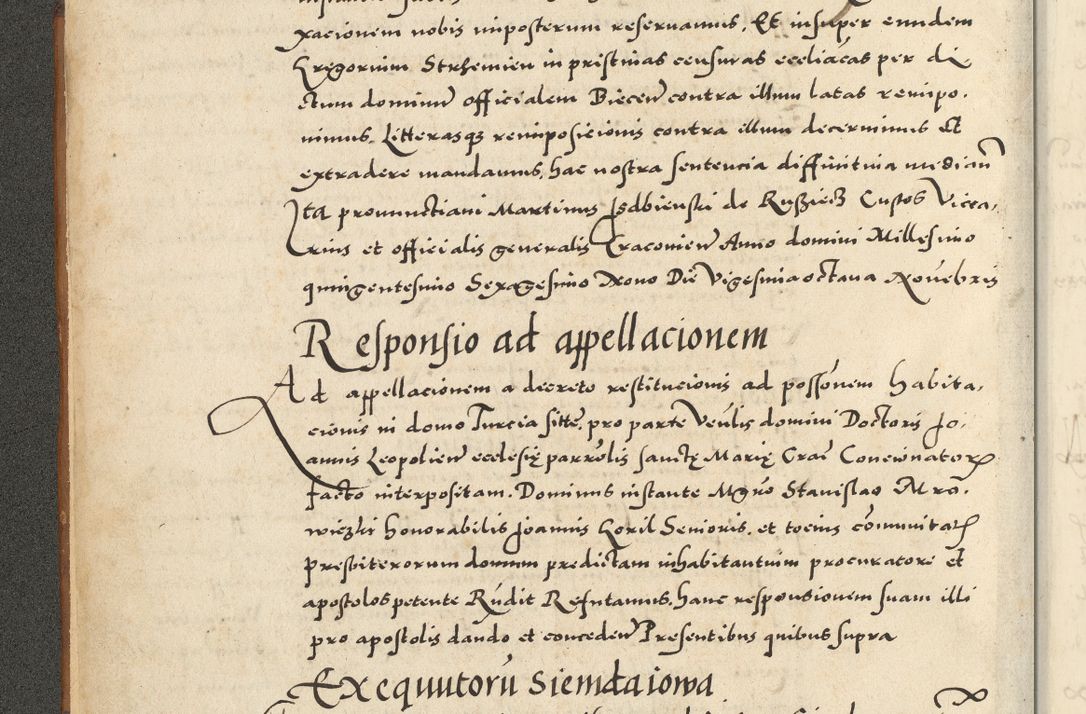 xacionem nobis imposterum reservamus. Et insuper eundem
Gregorium Strhemien in pristinas censuras eccliácas per di
ctum dominum officialem Biecen contra illum latas reimpo.
nimus. Litterasq3 reimposicionis contra illum decernimus Et
extradere mandamus, hac nostra sentencia diffinitiva median
Ita pronunctiavi Martinus Isdbienski de Rusziecz Custos Vicca,
rius et officialis generalis Cracovien Anno domini Millesimo
quingentesimo Sexagesimo Nono Die Vigesima octava Novebris
Responsio ad appellacionem
Ad appellacionem a decreto restitucionis ad possonem habita,
cionis in domo Turcia sitte, pro parte Venlis domini Doctoris Jo,
annis Leopolien ecclesię parrolis sanctę Marię Crac Concionator
facto interpositam. Dominus instante Mgro Stanislao Mro.
wiezki honorabilis Joannis Goril Senioris, et tocius comunitat
presbiterorum domum predictam inhabitantium procuratore et
apostolos petente Rudit Refutamus, hanc responsionem suam illi
pro apostolis dando et conceden Presentibus quibus supra
Exequutoru Siemdaiowa